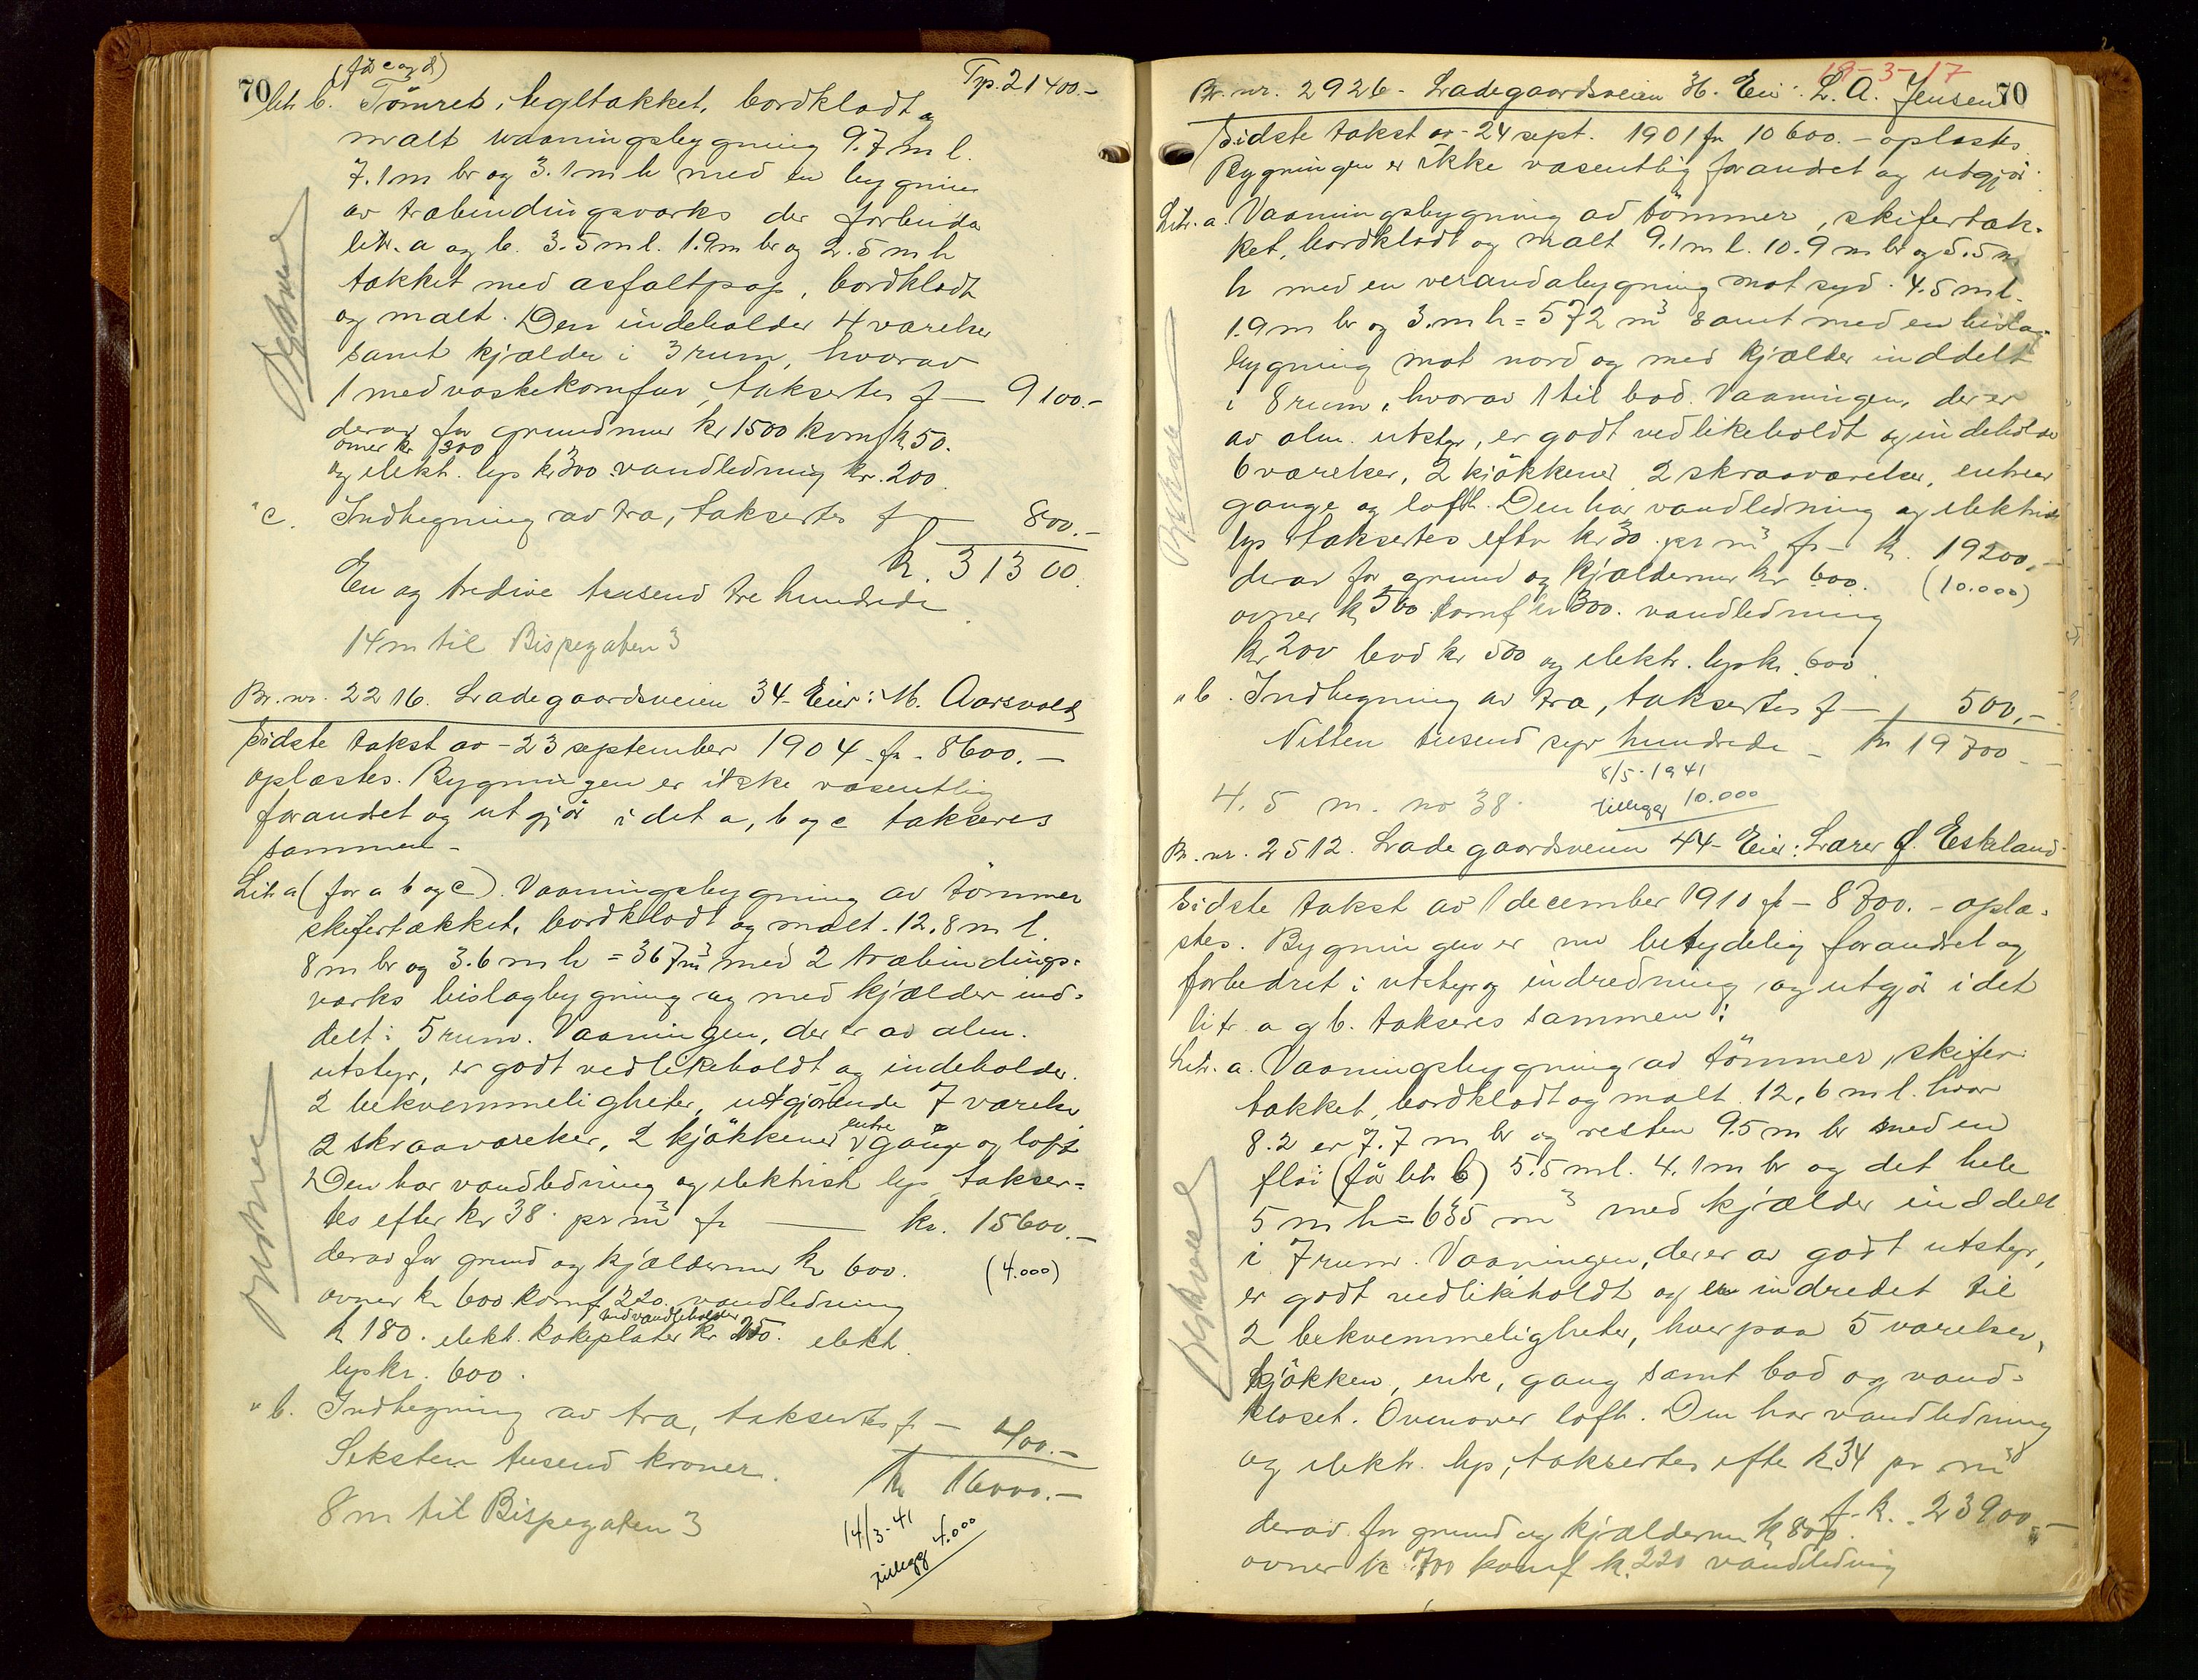 70
(för c og d)
Tp. 21400.-
litr b. Tömret, tegltækket, bordklædt og
malt vaaningsbygning 9.7 m l.
7.1 m br og 3.1 m h med en bygning
av træbindingsværks der forbinder
litr. a og b. 3.5 m l. 1.9 m br og 2.5 m h
tækket med asfaltpap, bordklædt
og malt. Den indeholder 4 værelser
samt kjælder i 3 rum, hvorav
1 med vaskekomfur, taksertes f — 9100.-
derav for grundmur kr 1500 komf kr 50.
ovner kr 300
og elekt. lys kr 300 vandledning kr. 200.
" c. Indhegning av træ, taksertes f — 800.-
kr. 31300.
En og tredive tusend tre hundrede
14 m til Bispegaten 3
Br. nr. 2216. Ladegaardsveien 34 - Eier: M. Aarsvold
Sidste takst av - 23 september 1904 fr. 8600.-
oplæstes. Bygningen er ikke væsentlig
forandret og utgjör idet a, b og c takseres
sammen -
Litr a (for a b og c). Vaaningsbygning av tömmer
skifertækket, bordklædt og malt. 12.8 m l.
8 m br og 3.6 m h = 367 m³ med 2 træbindings-
værks bislagbygning og med kjælder ind-
delt i 5 rum. Vaaningen, der er av alm.
utstyr, er godt vedlikeholdt og indeholder
2 bekvemmeligheter, utgjörende 7 værelser
2 skraaværelser, 2 kjökkener, entre gange og loft
Den har vandledning og elektrisk lys takser-
tes efter kr 38 pr m³ fr — kr. 15600.-
derav for grund og kjældermur kr 600. (4.000)
ovner kr 600 komf 220. vandledning
kr 180. elekt. kokeplater med vandbeholder kr 250. elekt.
lys kr. 600.
" b. Indhegning av træ, taksertes f — 400.-
Seksten tusend kroner. kr 16000.-
8 m til Bispegaten 3
14/3-41
tillegg 4.000
Beskrevet
Beskrevet
18-3-17
70
Br. nr. 2926 - Ladegaardsveien 36. Eier: L. A. Jensen
Sidste takst av - 24 sept. 1901 fr 10600.- oplæstes.
Bygningen er ikke væsentlig forandret og utgjör:
Litr. a. Vaaningsbygning av tömmer, skifertæk-
ket, bordklædt og malt 9.1 m l. 10.9 m br og 5.5 m
h med en verandabygning mot syd. 4.5 m l.
1.9 m br og 3. m h = 572 m³ samt med en bislag-
bygning mot nord og med kjælder inddelt
i 8 rum, hvorav 1 til bad. Vaaningen, der er
av alm. utstyr, er godt vedlikeholdt og indeholder
6 værelser, 2 kjökkener 2 skraaværelser, entreer
gange og loft. Den har vandledning og elektrisk
lys taksertes efter kr 30 pr m³ fr — kr. 19200.-
derav for grund og kjældermur kr 600. (10.000)
ovner kr 500 komf kr 300. vandledning
kr 200 bad kr 500 og elektr. lys kr. 600
" b. Indhegning av træ, taksertes f — 500.-
Nitten tusend syv hundrede — kr 19700-
8/5-1941
4.5 m. no 38. tillegg 10.000
Br. nr. 2512. Ladegaardsveien 44 - Eier: Lærer J. Eskeland
Sidste takst av 1 december 1910 fr — 8700.- oplæ-
stes. Bygningen er nu betydelig forandret og
forbedret i utstyr og indredning og utgjör idet
litr. a og b. takseres sammen:
Litr. a. Vaaningsbygning av tömmer, skifer-
tækket, bordklædt og malt. 12,6 m l. hvor
8.2 er 7.7 m br og resten 9.5 m br med en
flöi (för litr b) 5.5 m l. 4.1 m br og det hele
5 m h = 635 m³ med kjælder inddelt
i 7 rum. Vaaningen, der er av godt utstyr,
er godt vedlikeholdt og er indredet til
2 bekvemmeligheter, hver paa 5 værelser,
kjökken, entre, gang samt bad og vand-
kloset. Ovenover loft. Den har vandledning
og elektr. lys, taksertes efter kr 34 pr m³
f. kr. 23900.-
derav for grund og kjældermur kr 800.
ovner kr 700 komf kr. 220 vandledning
Beskrevet
Beskrevet